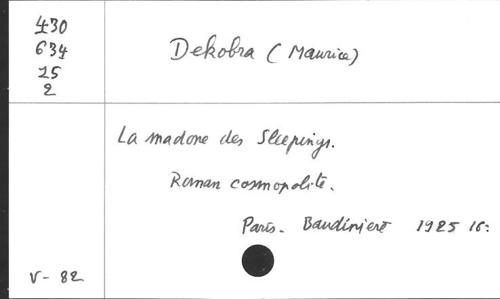 430
634
25
2
Dekobra (Maurice)
La madone des Sleepings.
Roman cosmopolite.
Paris. Baudinière 1925 16:
V- 82